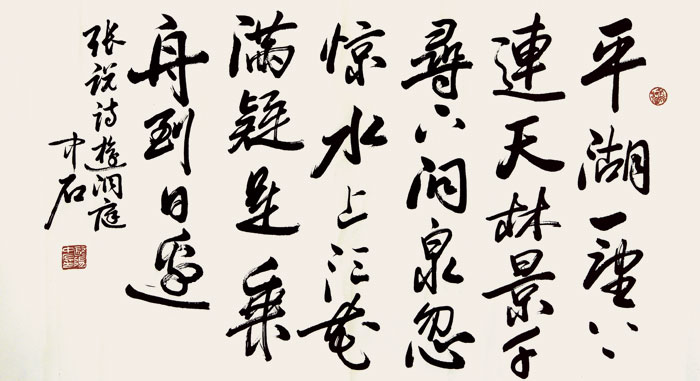 平湖一望上
連天林景千
尋下洞泉忽
惊水上光華
滿疑是乘
舟到日邊
张说诗遊洞庭
中石